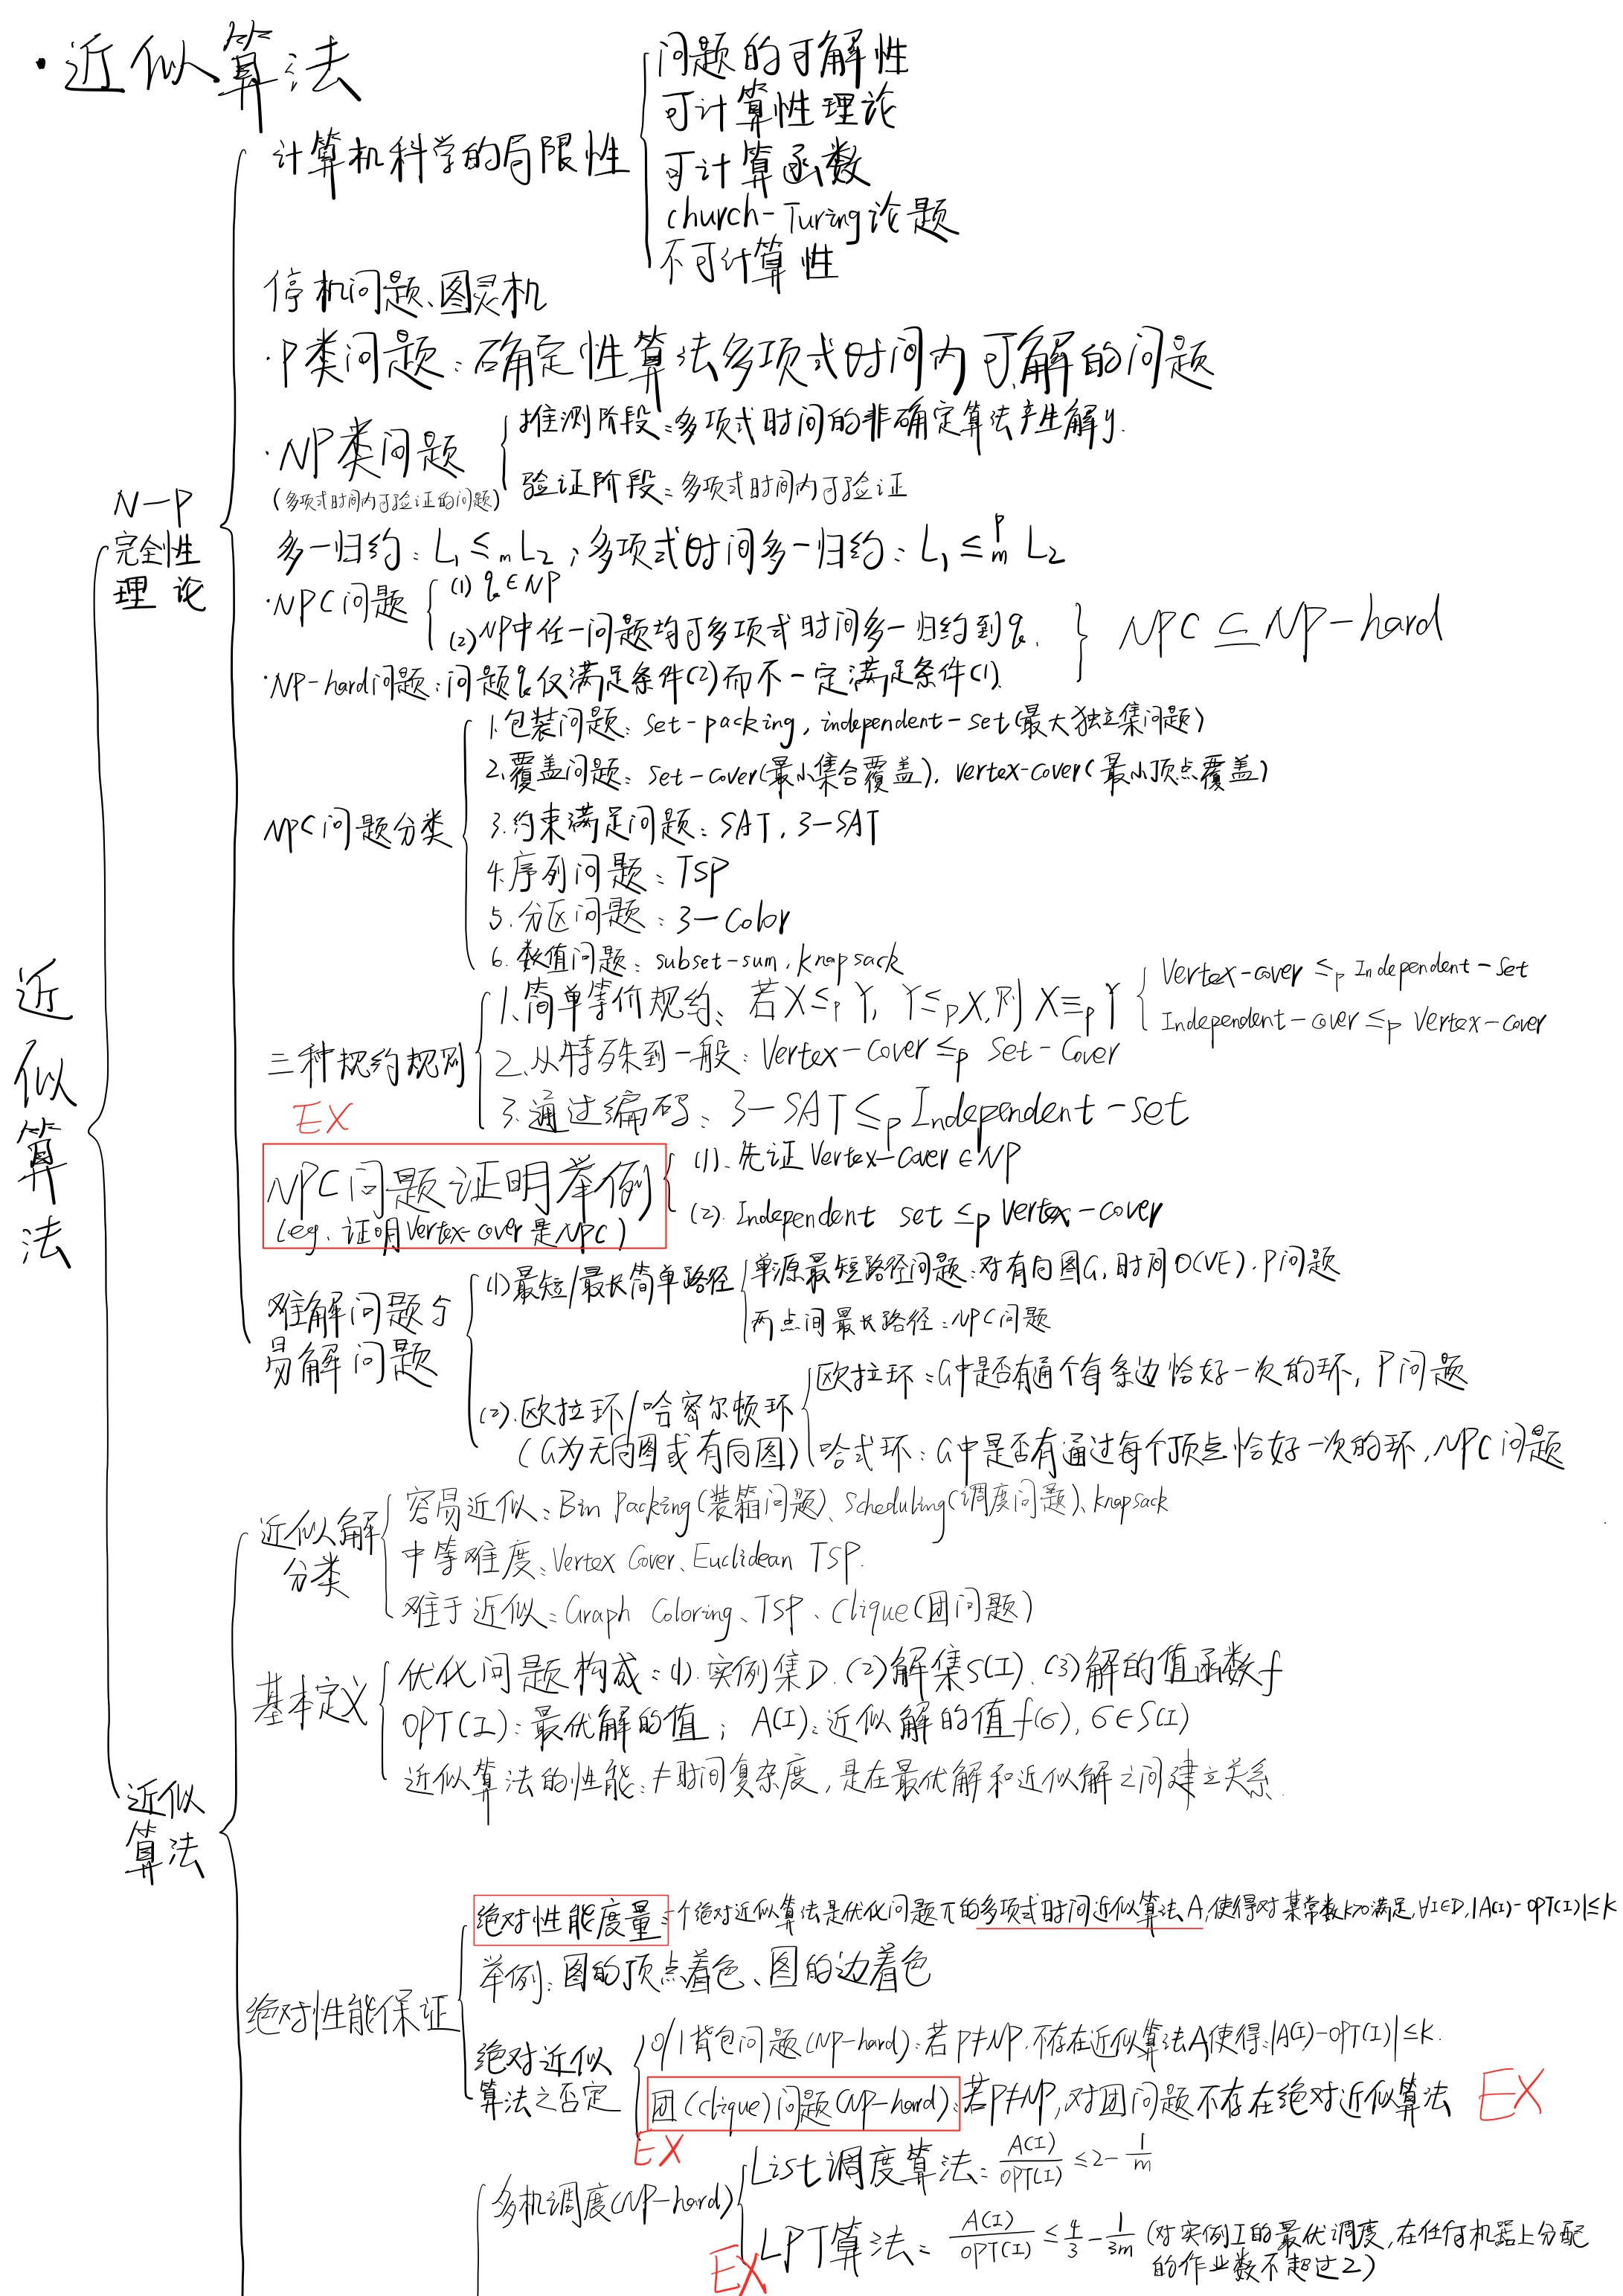 ·近似算法
问题的可解性
可计算性理论
计算机科学的局限性
可计算函数
church-Turing论题
不可计算性
停机问题、图灵机
·P类问题：确定性算法多项式时间内可解的问题
·NP类问题
(多项式时间内可验证的问题)
推测阶段：多项式时间的非确定算法产生解y.
验证阶段：多项式时间内可验证
N-P
完全性
理论
多一归约：L₁ ≤m L₂；多项式时间多一归约：L₁ ≤ᵖm L₂
·NPC问题
(1) q∈NP
(2) NP中任一问题均可多项式时间多一归约到q.
NPC ⊆ NP-hard
·NP-hard问题：问题q仅满足条件(2)而不一定满足条件(1).
NPC问题分类
1.包装问题：set-packing, independent-set(最大独立集问题)
2.覆盖问题：set-cover(最小集合覆盖), vertex-cover(最小顶点覆盖)
3.约束满足问题：SAT, 3-SAT
4.序列问题：TSP
5.分区问题：3-Color
6.数值问题：subset-sum, knapsack
近似算法
三种规约规则
1.简单等价规约：若X≤pY, Y≤pX,则 X≡pY
Vertex-cover ≤p Independent-Set
Independent-cover ≤p Vertex-cover
2.从特殊到一般：Vertex-cover ≤p Set-Cover
3.通过编码：3-SAT ≤p Independent-set
EX
NPC问题证明举例
(eg. 证明Vertex-cover是NPC)
(1).先证Vertex-cover∈NP
(2). Independent set ≤p Vertex-cover
难解问题与
易解问题
(1)最短/最长简单路径
单源最短路径问题：对有向图G, 时间O(VE). P问题
两点间最长路径：NPC问题
(2).欧拉环/哈密尔顿环
(G为无向图或有向图)
欧拉环：G中是否有通个每条边恰好一次的环, P问题
哈式环：G中是否有通过每个顶点恰好一次的环, NPC问题
近似
算法
近似解
分类
容易近似：Bin Packing(装箱问题)、Scheduling(调度问题)、knapsack
中等难度：Vertex Cover、Euclidean TSP.
难于近似：Graph Coloring、TSP、Clique(团问题)
基本定义
优化问题构成：(1).实例集D.(2)解集S(I).(3)解的值函数f
OPT(I)：最优解的值； A(I)：近似解的值f(σ), σ∈S(I)
近似算法的性能：≠时间复杂度, 是在最优解和近似解之间建立关系.
绝对性能保证
绝对性能度量：一个绝对近似算法是优化问题π的多项式时间近似算法A,使得对某常数k>0满足,∀I∈D,|A(I)-OPT(I)|≤k
举例：图的顶点着色、图的边着色
绝对近似
算法之否定
0/1背包问题(NP-hard)：若P≠NP.不存在近似算法A使得：|A(I)-OPT(I)|≤k.
团(clique)问题(NP-hard)：若P≠NP,对团问题不存在绝对近似算法 EX
EX
多机调度(NP-hard)
List调度算法：A(I)/OPT(I) ≤2-1/m
LPT算法：A(I)/OPT(I) ≤ 4/3 - 1/3m (对实例I的最优调度,在任何机器上分配
的作业数不超过2)
EX